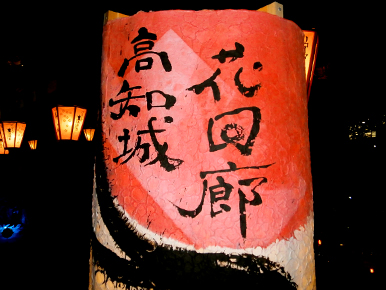 高知城
花回廊